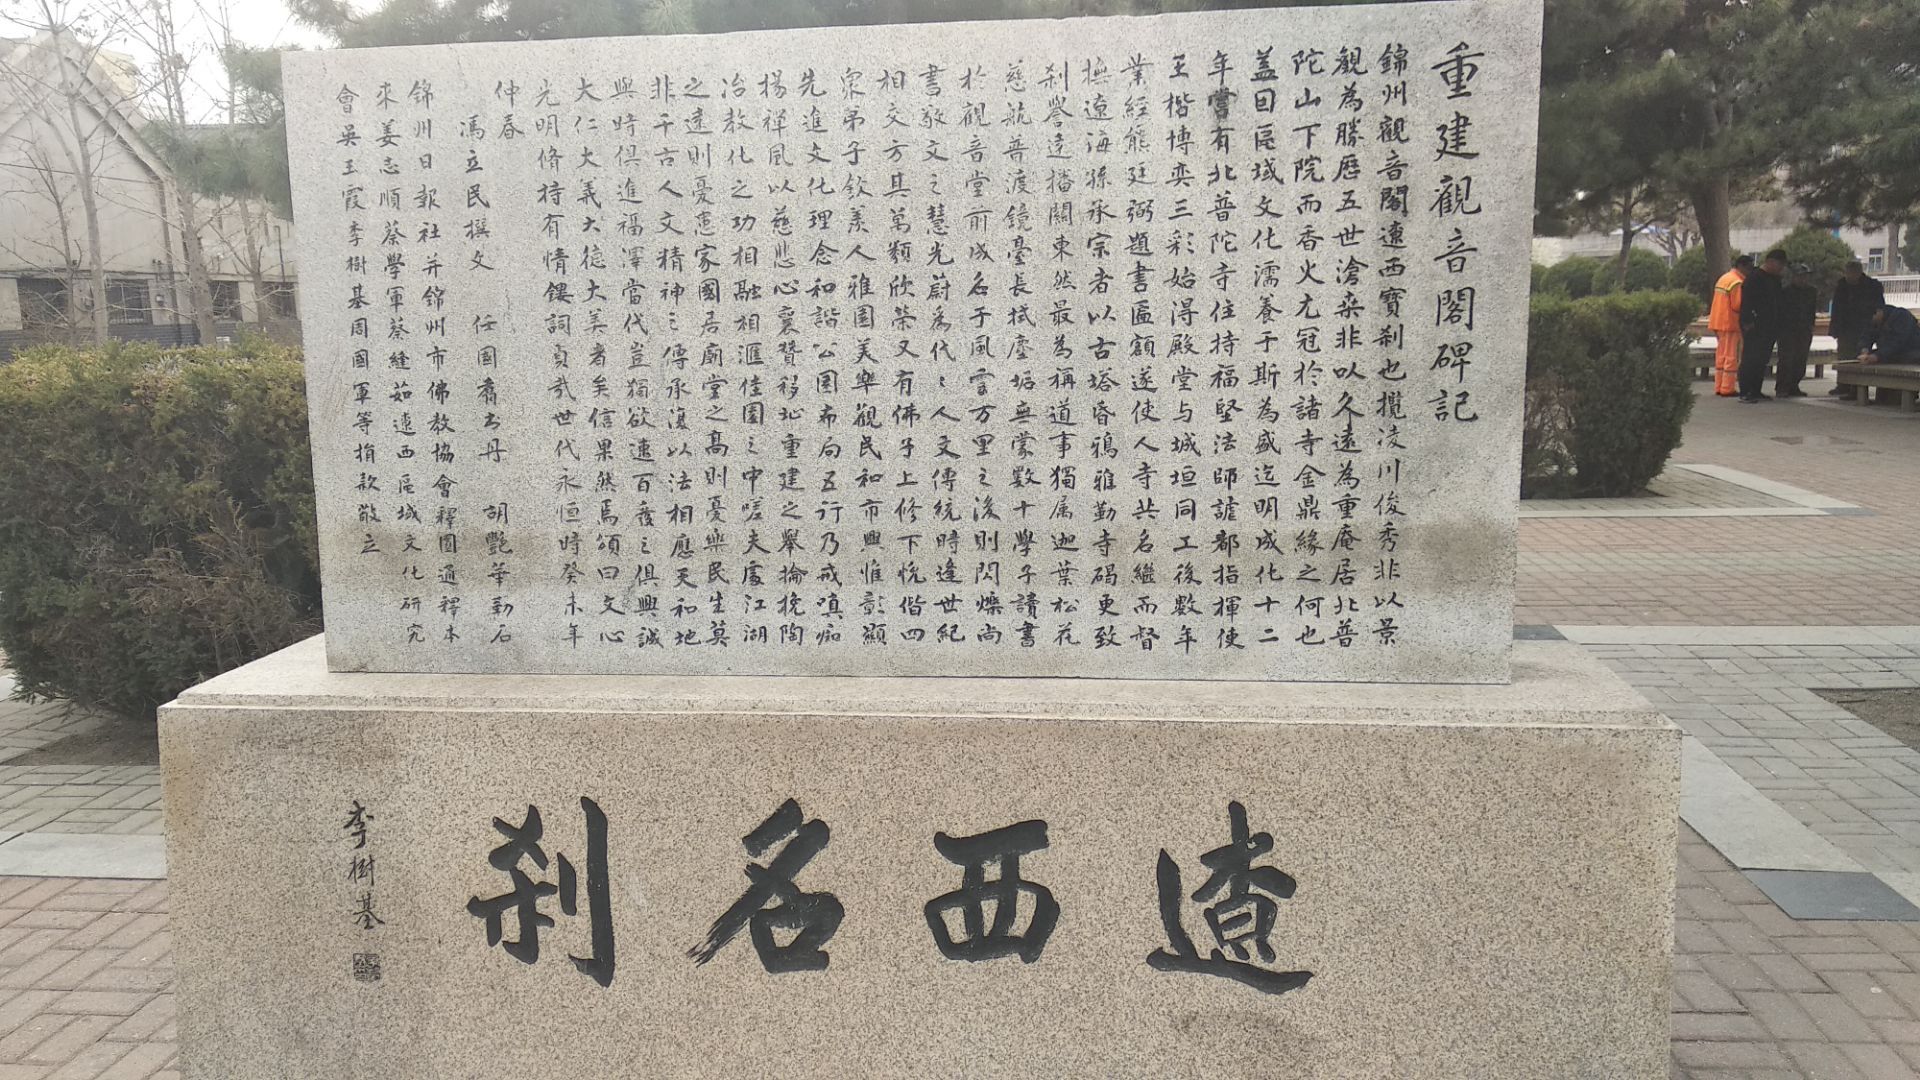 重建觀音閣碑記
錦州觀音閣遼西寶剎也攬凌川俊秀非以景
觀為勝歷五世滄桑非以久遠為重庵居北普
陀山下院而香火尤冠於諸寺金鼎緣之何也
蓋因區域文化濡養于斯為盛迄明成化十二
年嘗有北普陀寺住持福堅法師謔都指揮使
王楷博奕三彩始得殿堂与城垣同工後數年
業經熊廷弼題書匾額遂使人寺共名繼而督
撫遼海孫承宗者以古塔昏鴉雅勤寺碣更致
剎譽遠播關東然最為稱道事獨属迦葉松花
慈航普渡鏡臺長拭塵垢無蒙數十學子讀書
於觀音堂前成名于風雲万里之後則閃爍尚
書敬文之慧光蔚為代々人文傳統時逢世紀
相交方其萬類欣榮又有佛子上修下悅偕四
眾弟子欽羨人雅園美樂觀民和市興惟彰顯
先進文化理念和諧公園布局五行乃戒嗔痴
揚禪風以慈悲心襄贊移址重建之舉掄挽陶
冶教化之功相融相滙佳園之中嗟夫處江湖
之遠則憂患家國居廟堂之高則憂樂民生莫
非千古人文精神之傳承復以法相應天和地
與時俱進福澤當代豈獨欲速百廢之俱興誠
大仁大義大德大美者矣信果然焉頌曰文心
光明脩持有情鏤詞貞珉世代永恒時癸未年
仲春
馮立民撰文 任國喬書丹 胡艷華勒石
錦州日報社并錦州市佛教協會釋圓通釋本
來姜志順蔡學軍蔡縫茹遼西區域文化研究
會吳玉霞李樹基周國軍等捐款敬立
遼西名剎
李樹基